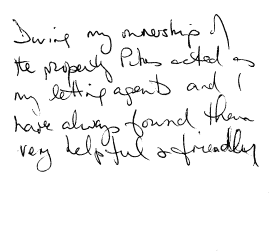 During my ownership of
the property Pikes acted as
my letting agents and I
have always found them
very helpful & friendly